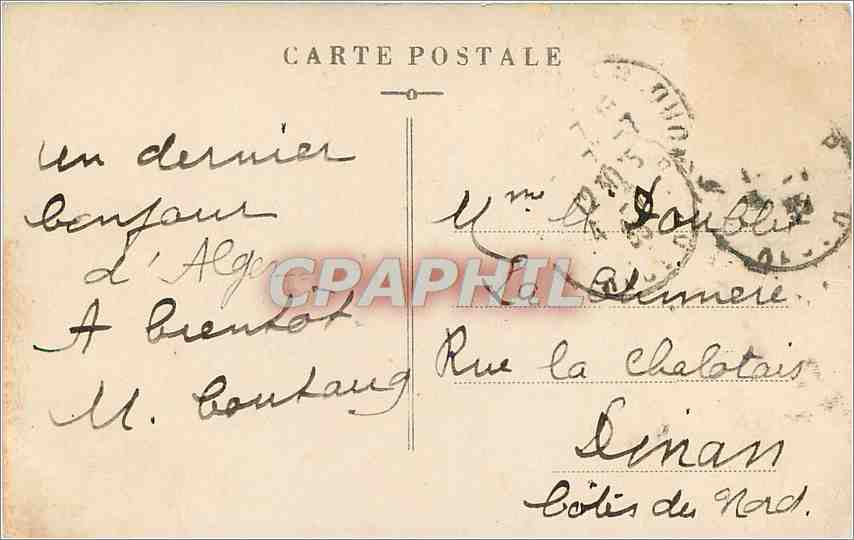 CARTE POSTALE
un dernier
bonjour
d'Alger
A bientôt
M.
CPAPHIL
Mme
La
Rue la Chalotais
Dinan
Côtes du Nord.